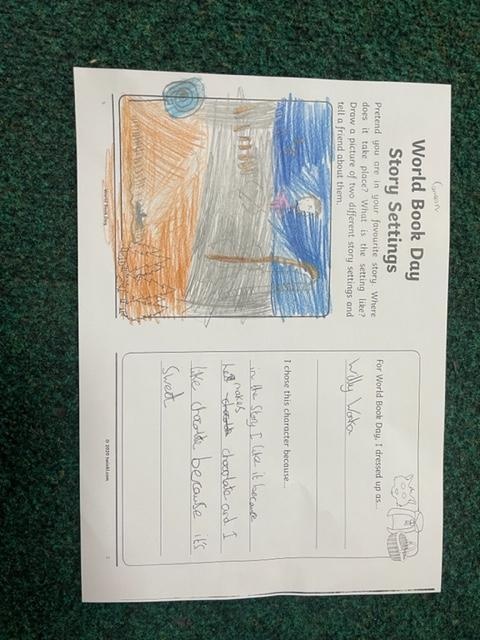 World Book Day
Story Settings
Pretend you are in your favourite story. Where
does it take place? What is the setting like?
Draw a picture of two different story settings and
tell a friend about them.
World Book Day
For World Book Day, I dressed up as...
Willy Wonka
I chose this character because...
in the Story I like it because
makes
chocolate and I
like chocolate because it's
Sweet
© 2020 twinkl.com